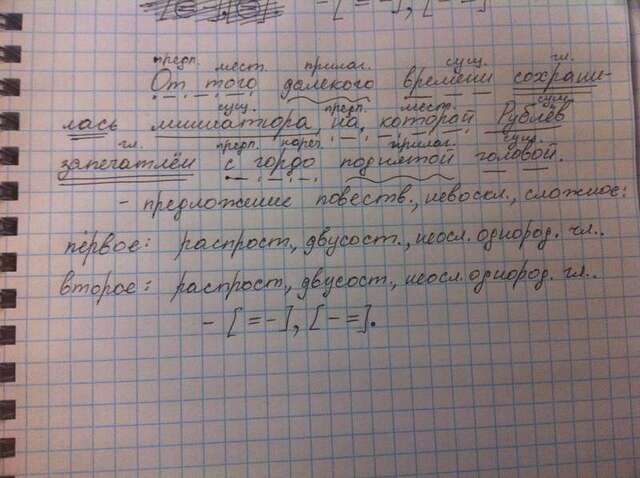 - [= -], [- =]
предл. мест. прилаг. сущ. гл.
От того далекого времени сохрани-
сущ. предл. мест. сущ.
лась миниатюра, на которой Рублёв
гл. предл. нареч. прилаг. сущ.
запечатлён с гордо поднятой головой.
- предложение повеств., невоскл., сложное:
первое: распрост., двусост., неосл. однород. чл..
второе: распрост., двусост., неосл. однород. чл..
- [= -], [- =].